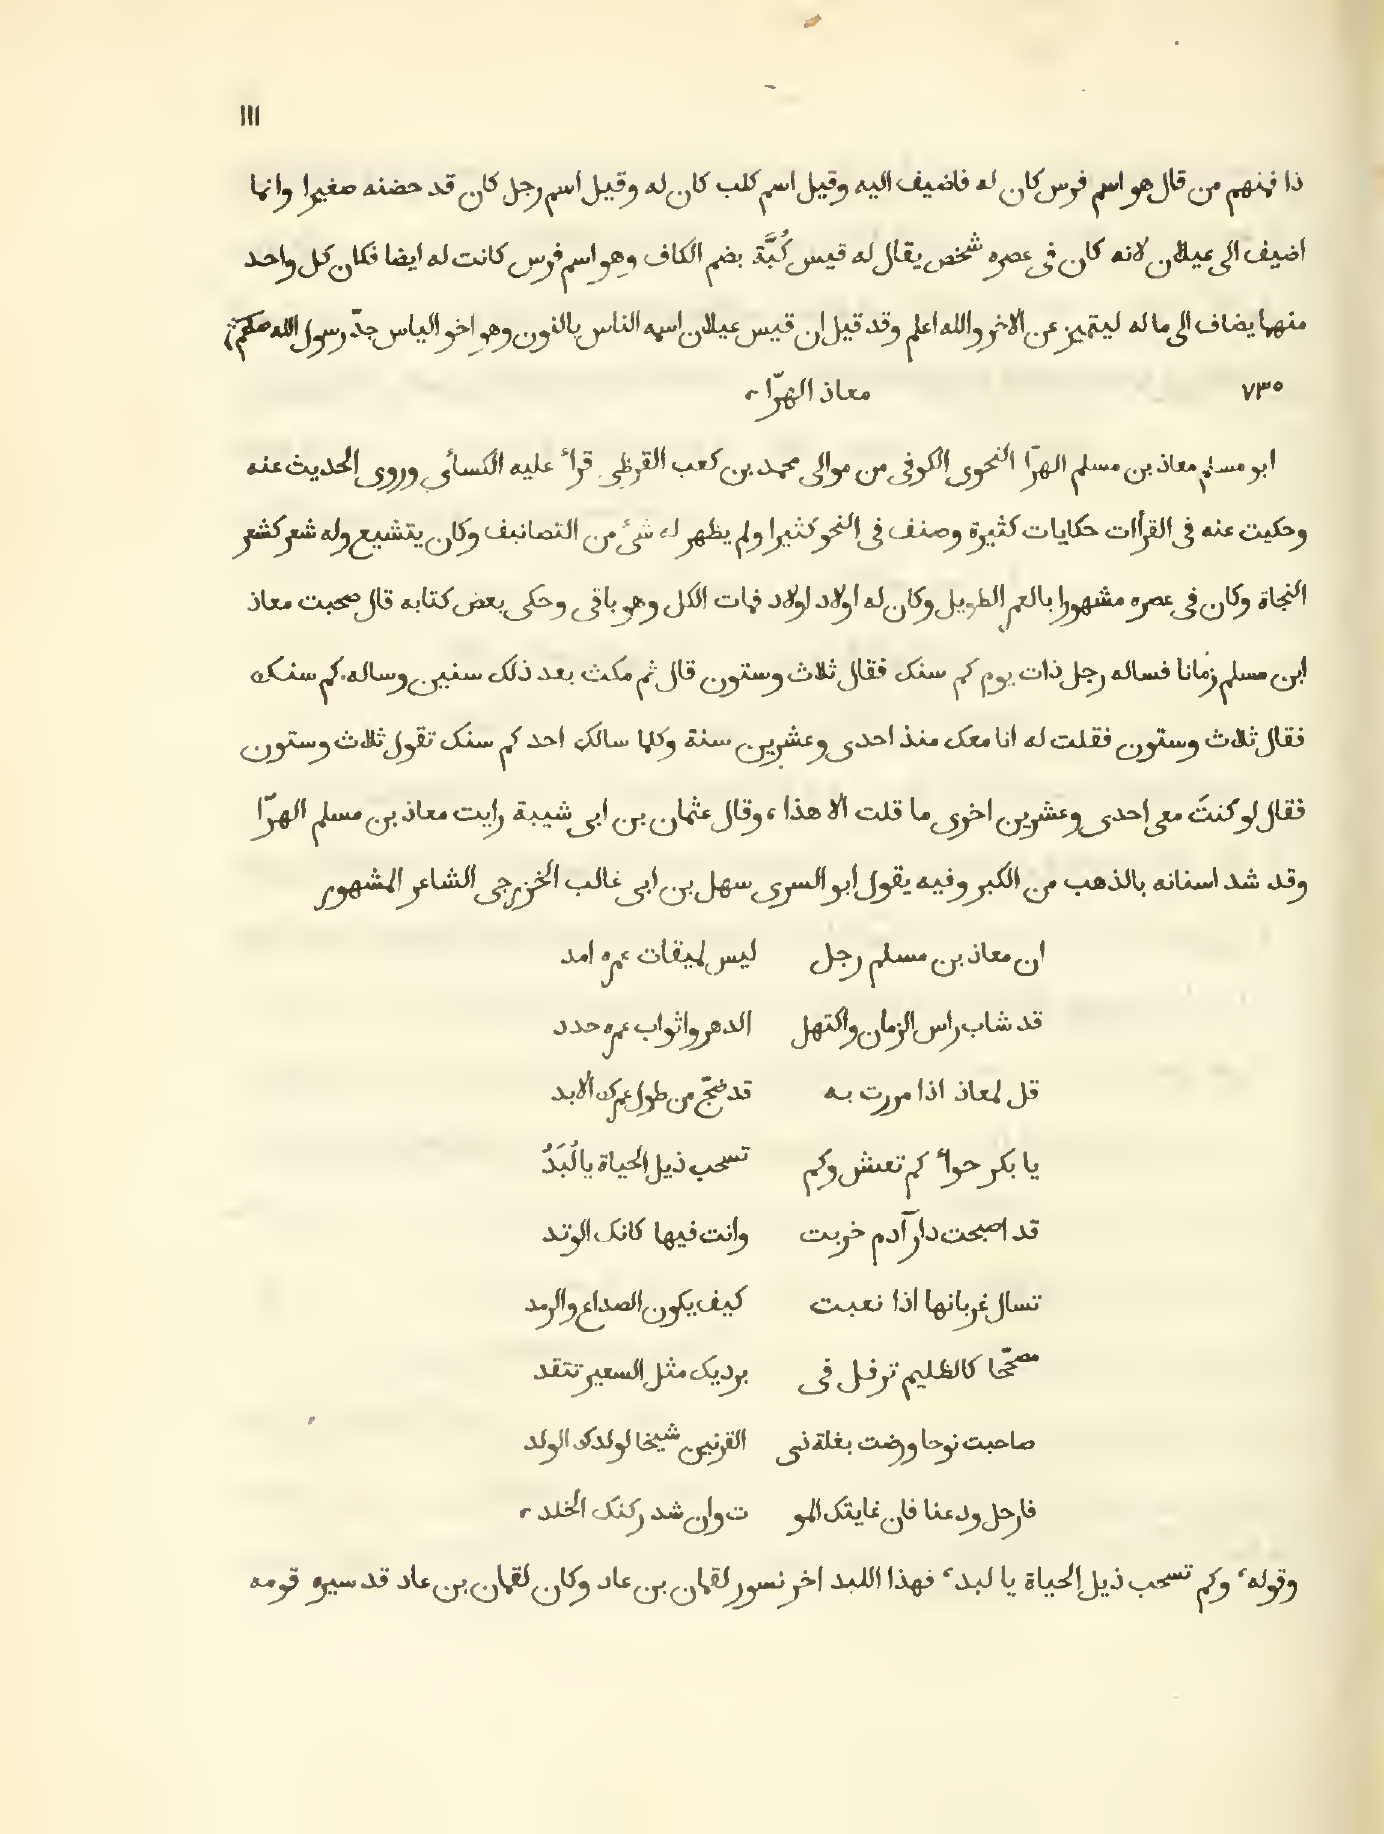 ١١١
ذا فمنهم من قال هو اسم فرس كان له فاضيف اليه وقيل اسم كلب كان له وقيل اسم رجل كان قد حضنه صغيرا وانما
اضيف الى عيلان لانه كان فى عصره شخص يقال له قيس كُبَّة بضم الكاف وهو اسم فرس كانت له ايضا فكان كل واحد
منهما يضاف الى ماله ليتميز عن الاخر والله اعلم وقد قيل ان قيس عيلان اسمه الناس بالنون وهو اخو الياس جدّ رسول الله صلعم
٧٣٥ معاذ الهرّا
ابو مسلم معاذ بن مسلم الهرّا النحوى الكوفى من موالى محمد بن كعب القرظى قرأ عليه الكسائى وروى الحديث عنه
وحكيت عنه فى القرأات حكايات كثيرة وصنف فى النحو كثيرا ولم يظهر له شئ من التصانيف وكان يتشيع وله شعر كشعر
النحاة وكان فى عصره مشهورا بالعمر الطويل وكان له اولاد اولاد فمات الكل وهو باقى وحكى بعض كتابه قال صحبت معاذ
ابن مسلم زمانا فساله رجل ذات يوم كم سنك فقال ثلاث وستون قال ثم مكث بعد ذلك سنين وساله كم سنك
فقال ثلاث وستون فقلت له انا معك منذ احدى وعشرين سنة وكلما سالك احد كم سنك تقول ثلاث وستون
فقال لو كنتَ معى احدى وعشرين اخرى ما قلت الا هذا، وقال عثمان بن ابى شيبة رايت معاذ بن مسلم الهرّا
وقد شد اسنانه بالذهب من الكبر وفيه يقول ابو السرى سهل بن ابى غالب الخزرجى الشاعر المشهور
ان معاذ بن مسلم رجل ليس لميقات عمره امد
قد شاب راس الزمان واكتهل الدهر واثواب عمره جدد
قل لمعاذ اذا مررت به قد ضجّ من طول عمرك الابد
يا بكر حوأ كم تعش وكم تسحب ذيل الحياة يا لُبَدُ
قد اصبحت دار آدم خربت وانت فيها كانك الوتد
تسال غربانها اذا نعبت كيف يكون الصداع والرمد
مصحّحا كالظليم ترفل فى برديك مثل السعير تتقد
صاحبت نوحا ورضت بغلة ذى القرنين شيخا لولدك الولد
فارحل ودعنا فان غايتك المو ت وان شد ركنك الخلد
وقوله، وكم تسحب ذيل الحياة يا لبد، فهذا اللبد اخر نسور لقمان بن عاد وكان لقمان بن عاد قد سيره قومه